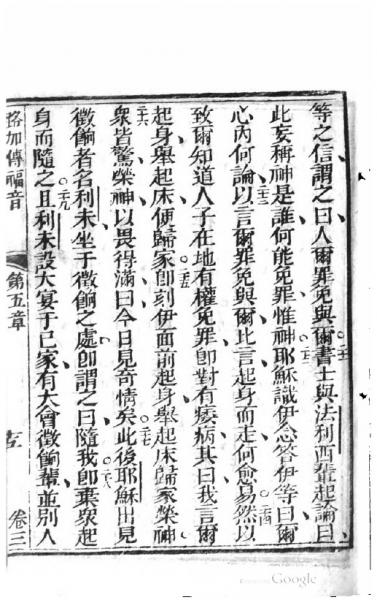 等之信謂之曰人爾罪免與爾書士與法利西輩起論曰
二十一
此妄稱神是誰何能免罪惟神耶穌識伊念答伊等曰爾
二十二
心內何論以言爾罪免與爾比言起身而走何愈易然以
二十三
二十四
致爾知道人子在地有權免罪即對有痿病其曰我言爾
起身舉起床便歸家即刻伊面前起身舉起床歸家榮神
二十五
眾皆驚榮神以畏得滿曰今日見奇情矣此後耶穌出見
二十六
二十七
徵餉者名利未坐于徵餉之處即謂之曰隨我即棄眾起
二十八
身而隨之且利未設大宴于己家有大會徵餉輩並別人
二十九
路加傳福音
第五章
卷三
Google